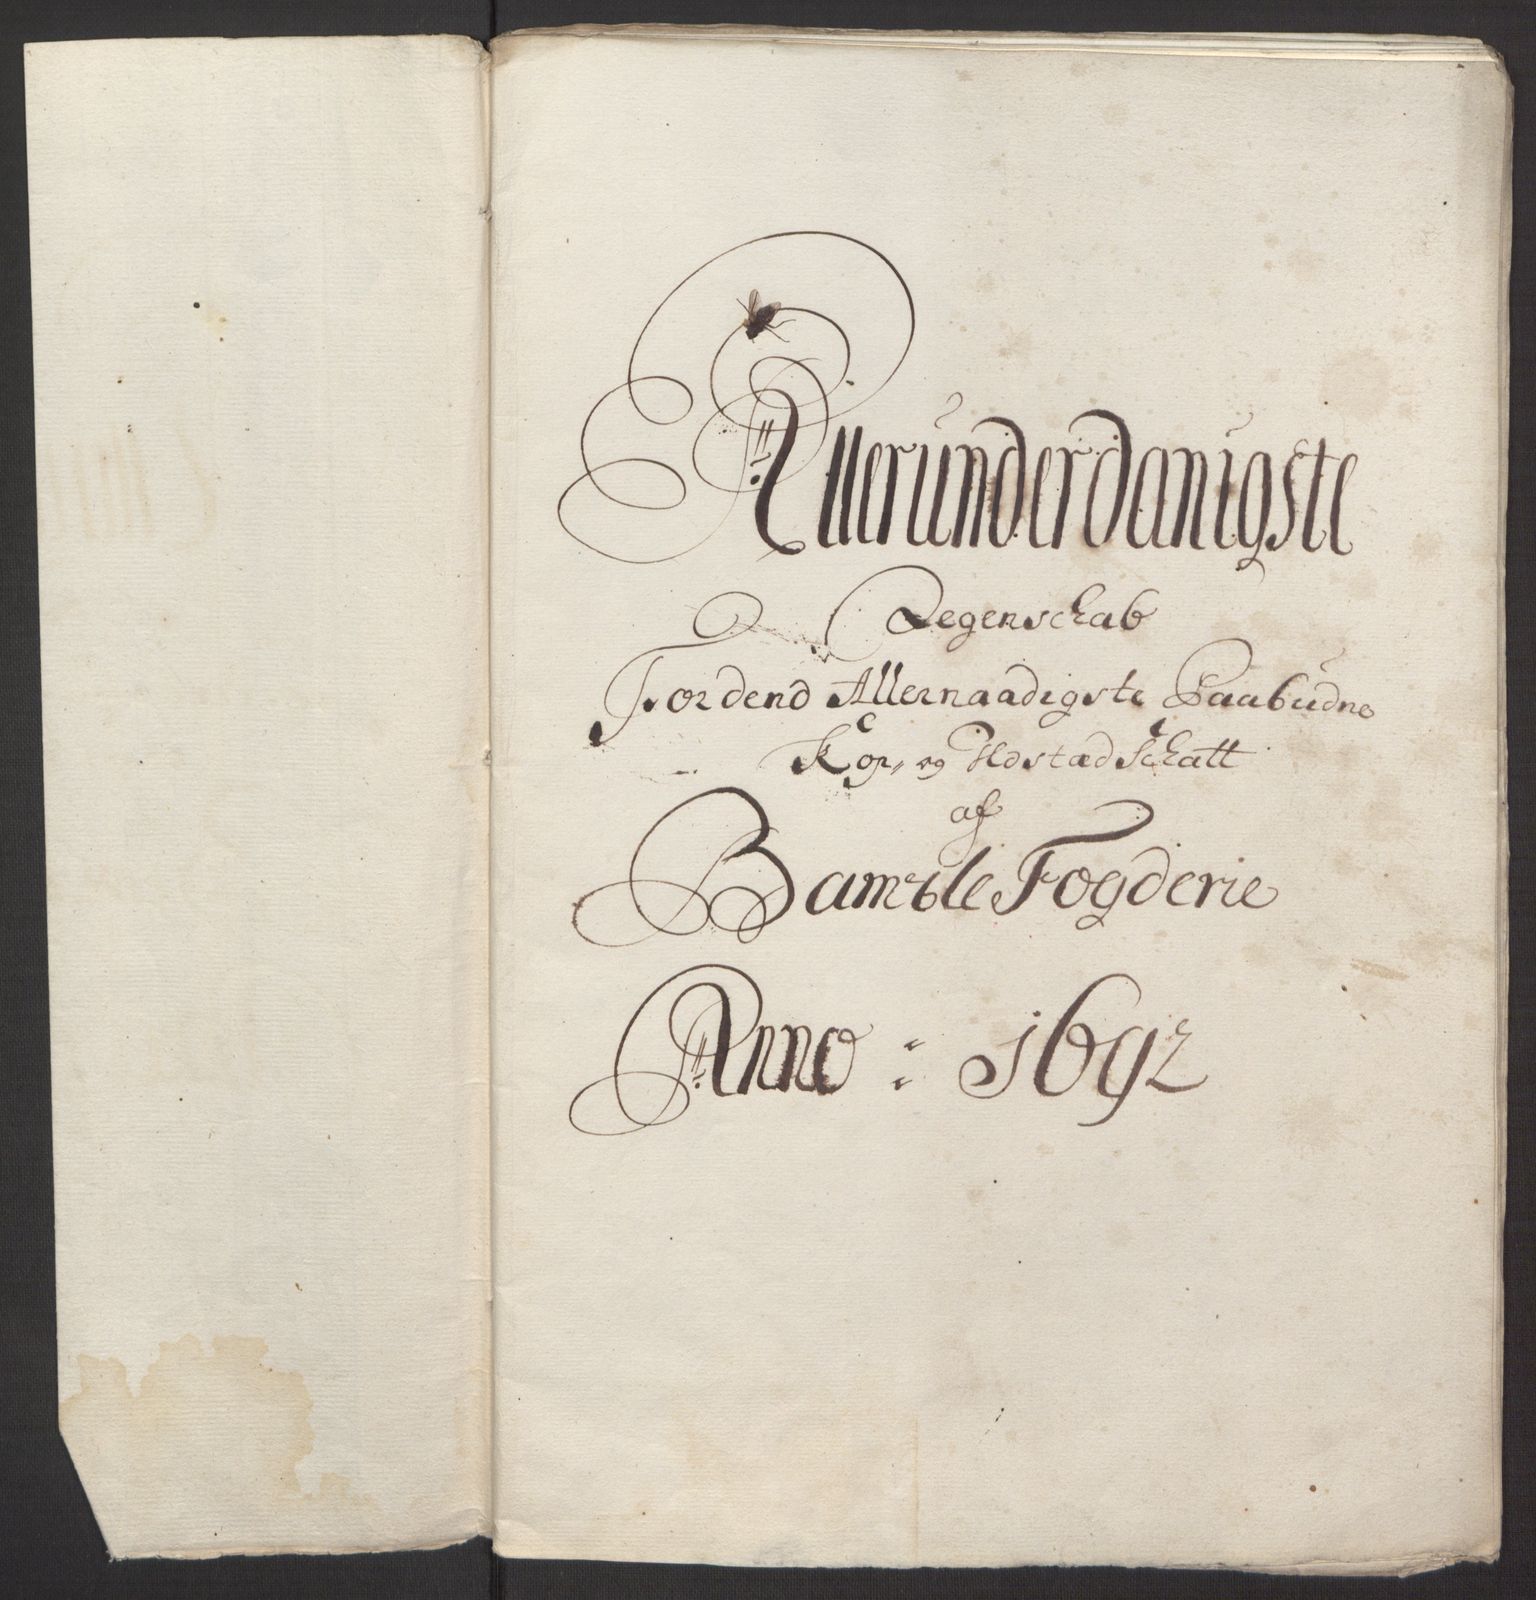 Allerunderdanigste
Regenschab
Fordend Allernaadigste Paabudne
Kop, og Ildstæd Schatt
af
Bamble Fogderie
Anno : 1692